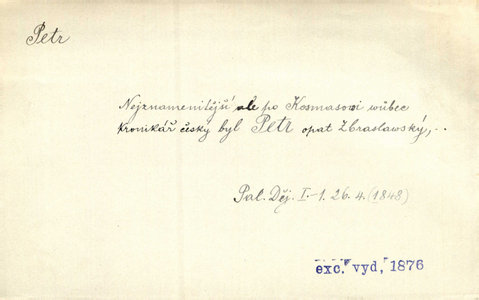 Petr
Nejznamenitější ale po Kosmasowi wůbec
kronikář český byl Petr opat Zbraslawský,..
Pal. Děj. I.-1. 26. 4. (1848)
exc. vyd, 1876